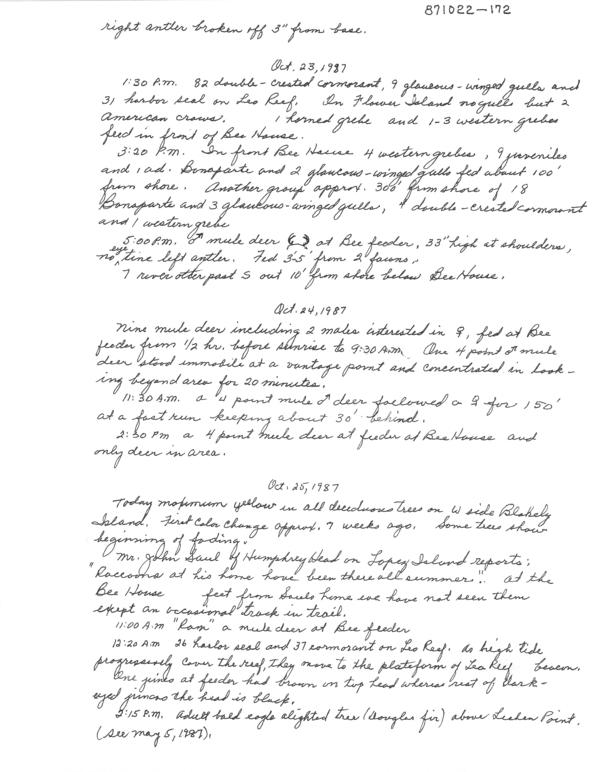 871022-172
right antler broken off 3" from base.
Oct. 23, 1987
1:30 P.m. 82 double-crested cormorant, 9 glaucous-winged gulls and
31 harbor seal on Leo Reef. On Flower Island no gulls but 2
American crows. 1 horned grebe and 1-3 western grebes
feed in front of Bee House.
3:20 P.m. In front Bee House 4 western grebes, 9 juveniles
and 1 ad. Bonaparte and 2 glaucous-winged gulls fed about 100'
from shore. Another group approx. 300' from shore of 18
Bonaparte and 3 glaucous-winged gulls, 1 double-crested cormorant
and 1 western grebe
5:00 P.m. ♂ mule deer at Bee feeder, 33" high at shoulders,
no eye tine left antler. Fed 3-5' from 2 fawns.
7 river otter past S out 10' from shore below Bee House.
Oct. 24, 1987
Nine mule deer including 2 males interested in ♀, fed at Bee
feeder from 1/2 hr. before sunrise to 9:30 A.m. One 4 point ♂ mule
deer stood immobile at a vantage point and concentrated in look-
ing beyond area for 20 minutes.
11:30 A.m. a 4 point mule ♂ deer followed a ♀ for 150'
at a fast run keeping about 30' behind.
2:30 Pm a 4 point mule deer at feeder at Bee House and
only deer in area.
Oct. 25, 1987
Today maximum yellow in all deciduous trees on W side Blakely
Island. First color change approx. 7 weeks ago. Some trees show
beginning of fading.
Mr. John Saul of Humphrey Head on Lopez Island reports;
"Raccoons at his home have been there all summer". At the
Bee House feet from Sauls home we have not seen them
exept an occasional track in trail.
11:00 A.m "Ram" a mule deer at Bee feeder
12:20 A.m 26 harbor seal and 37 cormorant on Leo Reef. As high tide
progressively cover the reef, they move to the plateform of Leo Reef beacon.
One junco at feeder had brown on top head whereas rest of dark-
eyed juncos the head is black.
3:15 P.m. Adult bald eagle alighted tree (Douglas fir) above Lichen Point.
(see May 5, 1987).